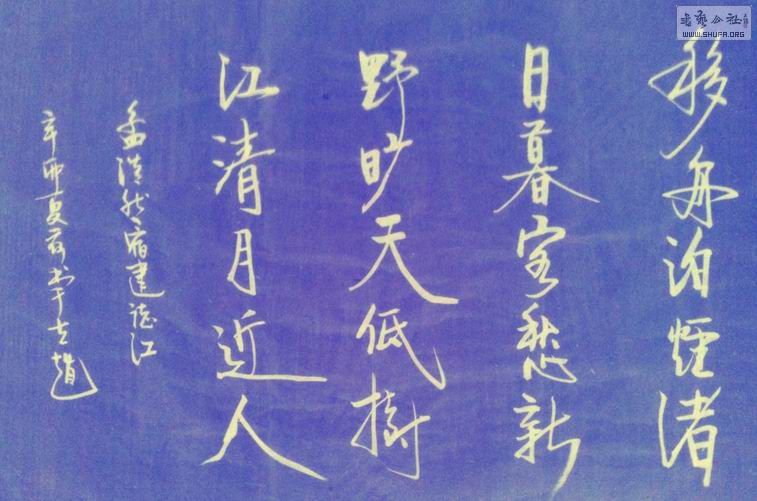 移舟泊煙渚
日暮客愁新
野旷天低樹
江清月近人
孟浩然宿建德江
辛卯夏 书于古趙
书艺公社
WWW.SHUFA.ORG